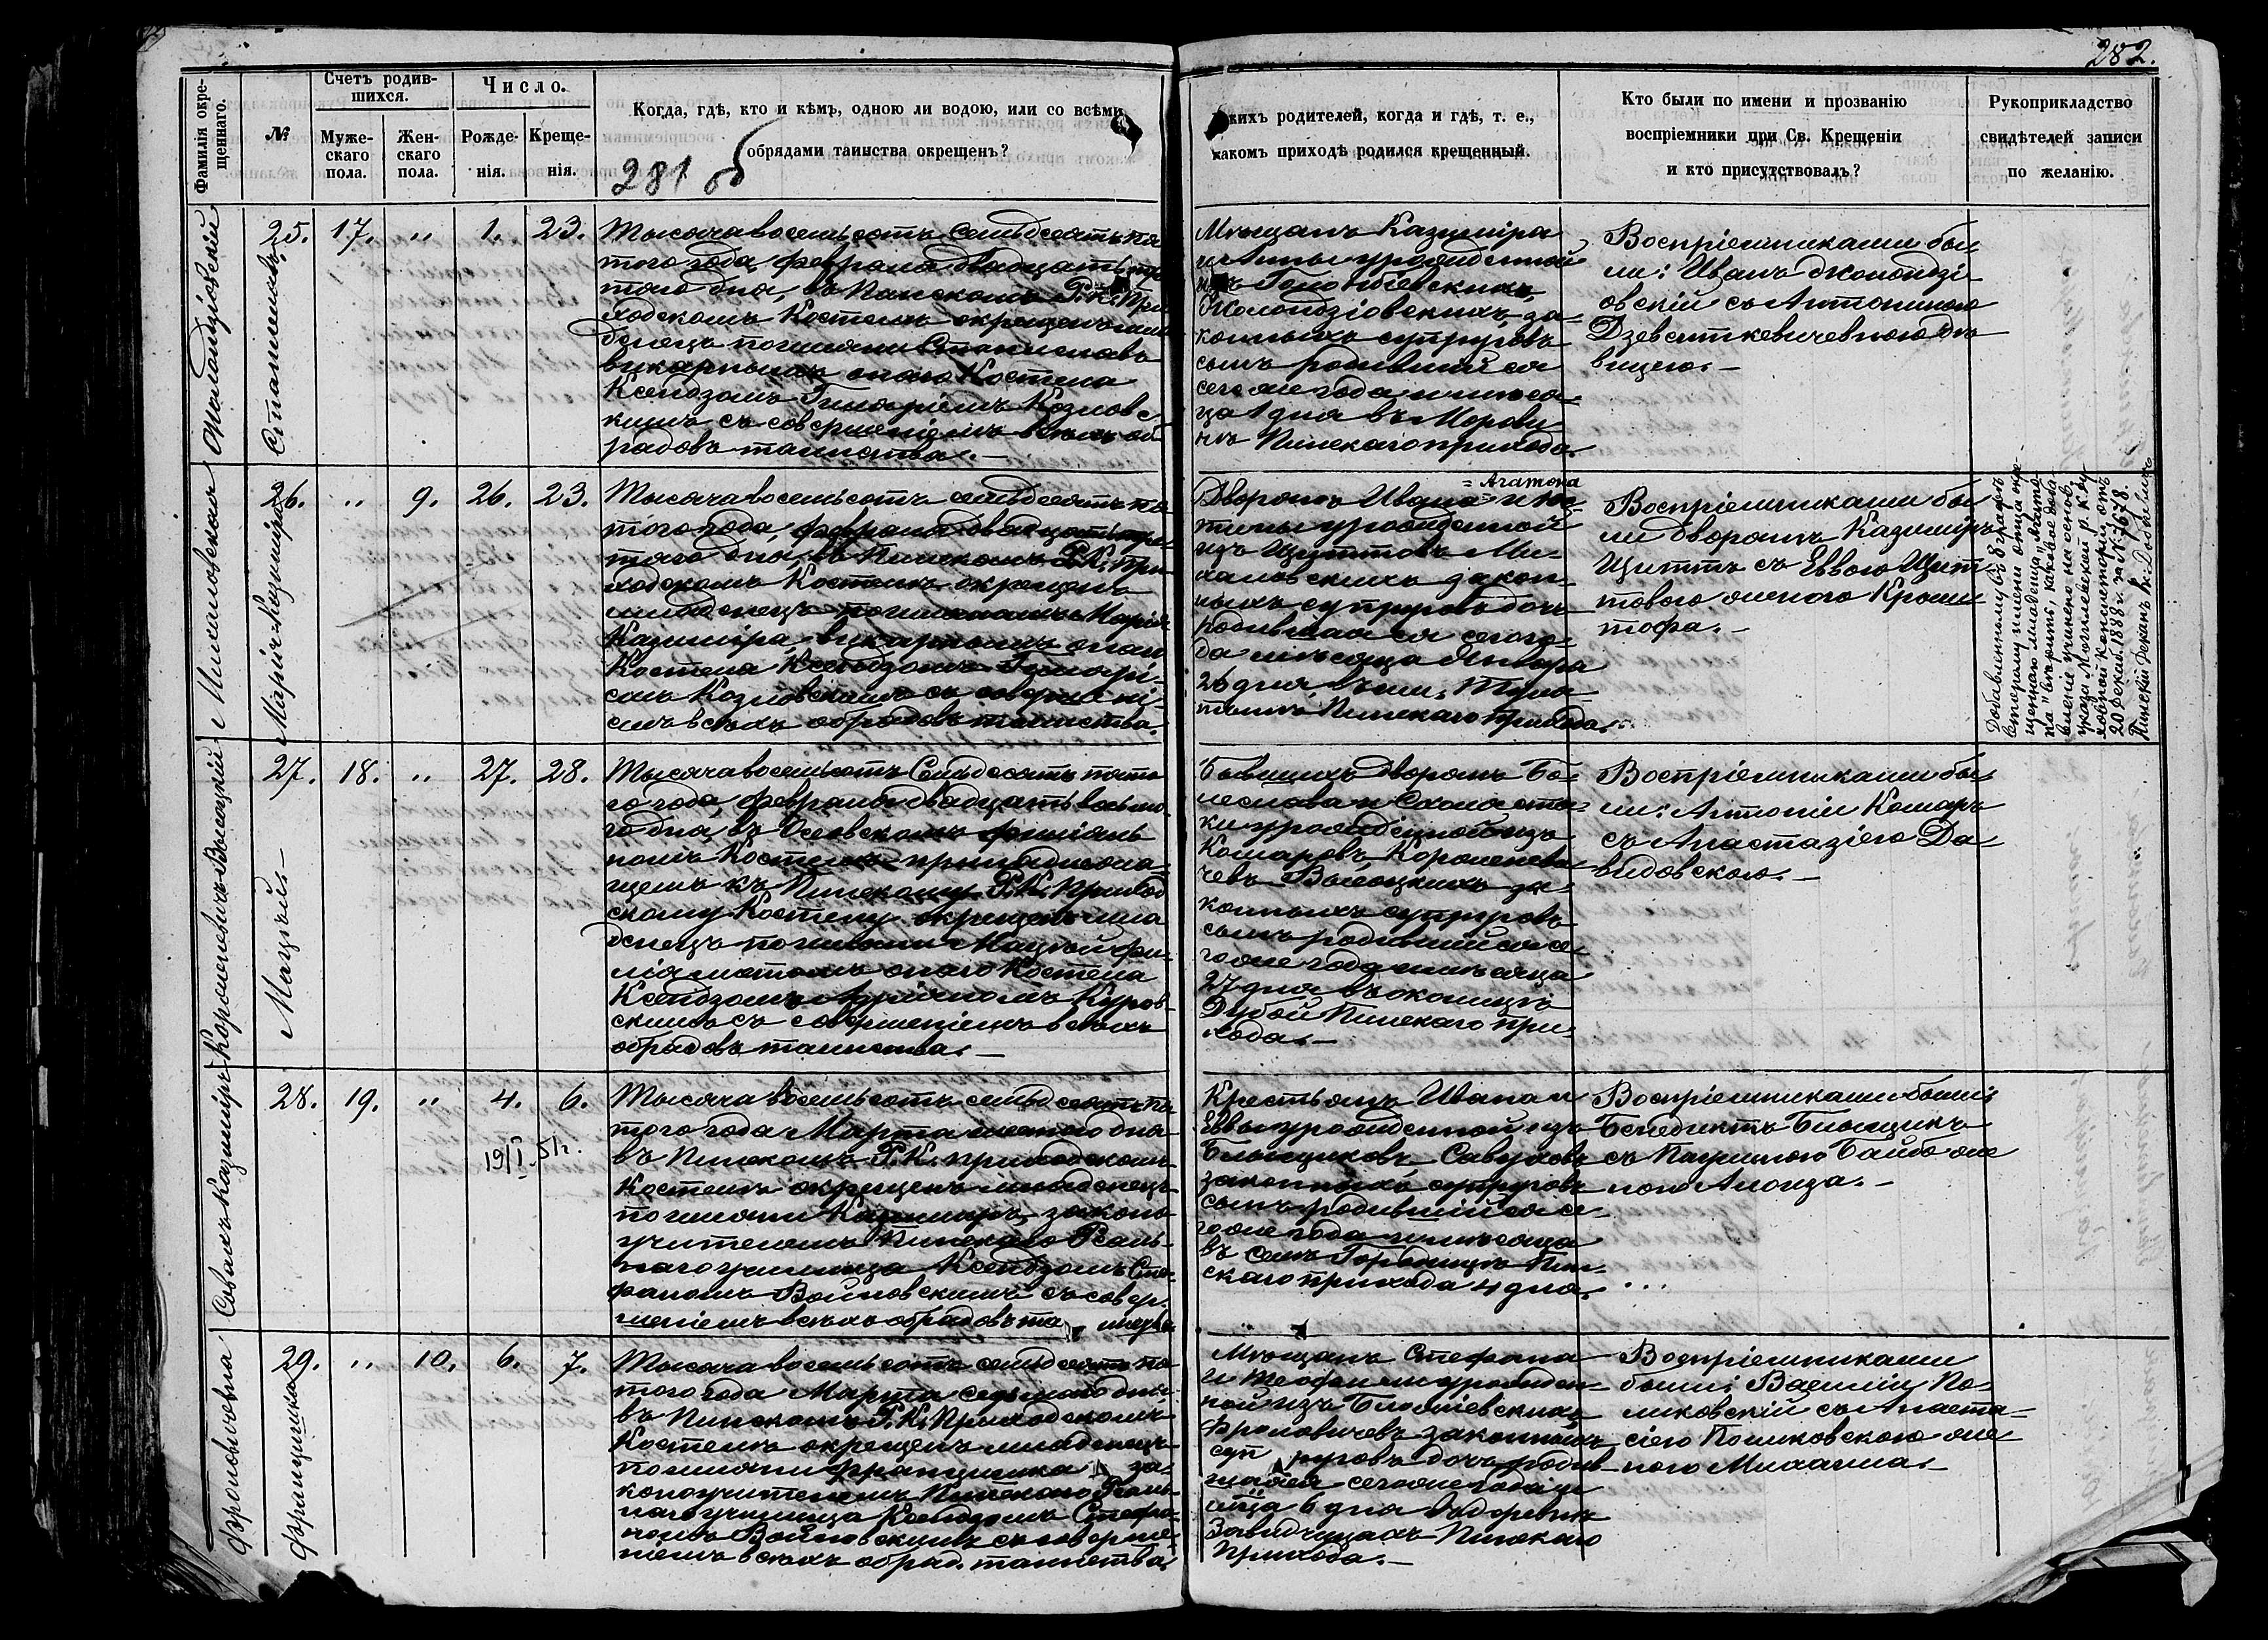 282.
Фамилія окре-
щеннаго.
№
Счетъ родив-
шихся.
Муже-
скаго
пола.
Жен-
скаго
пола.
Число.
Рожде-
нія.
Креще-
нія.
Когда, гдѣ, кто и кѣмъ, одною ли водою, или со всѣми
обрядами таинства окрещенъ?
281 об
кихъ родителей, когда и гдѣ, т. е.,
какомъ приходѣ родился крещенный.
Кто были по имени и прозванію
воспріемники при Св. Крещеніи
и кто присутствовалъ?
Рукоприкладство
свидѣтелей записи
по желанію.
Станиславъ
25.
17.
"
1.
23.
Тысяча восемьсотъ семьдесятъ пя
того года февраля двадцать тре
тяго дня, въ Пинскомъ Р. К. При
ходскомъ Костелѣ окрещенъ мла
денецъ по имени Станиславъ
викарнымъ онаго Костела
Ксендзомъ Гиляріемъ Козловс
кимъ съ совершеніемъ всѣхъ об
рядовъ таинства.—
Мѣщанъ Казиміра
и Анны урожденной
изъ
законныхъ супруговъ
сынъ родившійся
сего же года и мѣся
ца 1 дня въ
Пинскаго прихода.
Воспріемниками бы
ли: Иванъ Жолондзі
овскій съ Антониною
Дзевяткевичевною дѣ
вицею.—
Михаловская
Марія-Казиміра
26.
"
9.
26.
23.
Тысяча восемьсотъ семьдесятъ пя
того года, февраля двадцать тре
тяго дня, въ Пинскомъ Р. К. при
ходскомъ Костелѣ окрещенъ
младенецъ по именамъ Марія
Казиміра, викарнымъ онаго
Костела Ксендзомъ Гиларі
емъ Козловскимъ съ совершені
емъ всѣхъ обрядовъ таинства.
= Агатона
Дворянъ Ивана = и Юс
тины урожденной
изъ Щиттовъ Ми
халовскихъ закон
ныхъ супруговъ дочь
родившаяся сего го
да мѣсяца Января
26 дня, въ им.
Пинскаго прихода.
Воспріемниками бы
ли дворянъ Казиміръ
Щиттъ съ Еввою Щит
товою женою Криш
тофа.—
Добавленному въ 8 графѣ
второму имени отца окре-
щеннаго младенца „Агато-
на“ вѣрить, каковое доба-
вленіе учинено на основ.
указа Могилевской р. к. ду
ховной консисторіи отъ
20 декаб. 1888 г. за N: 3678.
Пинскій Деканъ К:
Короленовичъ-Высоцкій
Мацѣй.—
27.
18.
"
27.
28.
Тысяча восемьсотъ семьдесятъ пята
го года, февраля двадцать восьмо
го дня, въ Осовскомъ филіаль
номъ Костелѣ принадлежа
щемъ къ Пинскому Р. К. приход
скому Костелу окрещенъ мла
денецъ по имени Мацѣй фи
ліалистомъ онаго Костела
Ксендзомъ Адріаномъ Куров
скимъ съ совершеніемъ всѣхъ
обрядовъ таинства.—
Бывшихъ дворянъ Бо
леслава и Схоласти
ки урожденной изъ
Комаровъ Короленови
чевъ Высоцкихъ за
конныхъ супруговъ
сынъ родившійся се
го же года и мѣсяца
27 дня въ околицѣ
Дубой Пинскаго при
хода.—
Воспріемниками бы
ли: Антоній Комаръ
съ Анастазіею Да
видовскою.—
Казиміръ
28.
19.
"
4.
6.
19/I 51г.
Тысяча восемьсотъ семьдесятъ пя
того года Марта шестаго дня
въ Пинскомъ Р. К. приходскомъ
Костелѣ окрещенъ младенецъ
по имени Казиміръ, законо
учителемъ Пинскаго Реаль
наго училища Ксендзомъ Сте
фаномъ Войновскимъ съ совер
шеніемъ всѣхъ обрядовъ та инства
Крестьянъ Ивана и
Еввы урожденной изъ
законныхъ супруговъ
сынъ родившійся се
го же года и мѣсяца
въ селѣ Городищѣ Пин
скаго прихода 4 дня.
Воспріемниками были:
Бенедиктъ
съ же
ною Алоиза.—
Фроловичевна
Францишка
29.
"
10.
6.
7.
Тысяча восемьсотъ семьдесятъ пя
того года Марта седьмаго дня
въ Пинскомъ Р. К. Приходскомъ
Костелѣ окрещенъ младенецъ
по имени Францишка за
коноучителемъ Пинскаго Реаль
наго училища Ксендзомъ Стефа
номъ Войновскимъ съ соверше
ніемъ всѣхъ обряд. таинства
Мѣщанъ Стефана
и Теофили урожден
ной изъ
Фроловичевъ законныхъ
суп руговъ дочь родив
шаяся сего же года и
мѣ-ца 6 дня въ деревнѣ
Завидчицахъ Пинскаго
прихода.—
Воспріемниками
были: Василій По
ликовскій съ Анаста
сіею Поликовскою же
ною Михаила.—